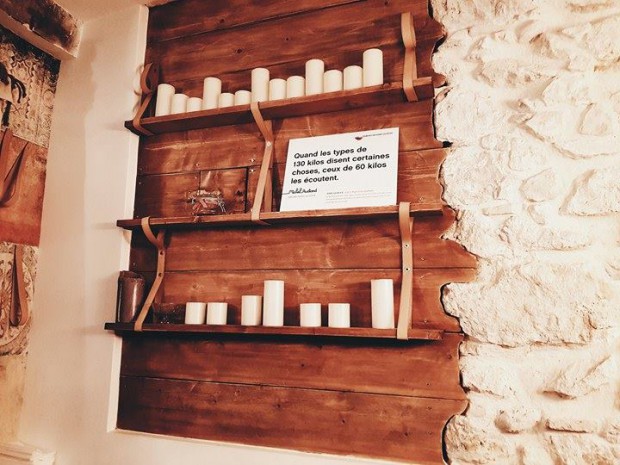 Quand les types de
130 kilos disent certaines
choses, ceux de 60 kilos
les écoutent.
Michel Audiard